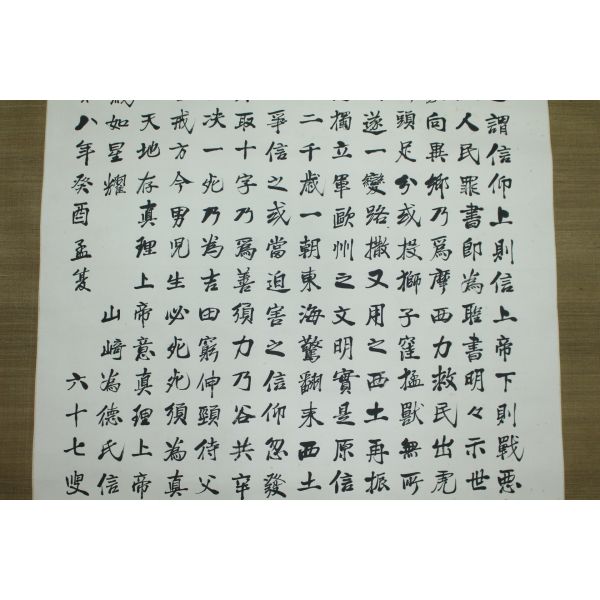 謂信仰上則信上帝下則戰惡
人民罪書即為聖書明々示世
向異鄉乃爲摩西力救民出虎
頭足分或投獅子窪猛獸無所
遂一變路撒又用之西土再振
獨立軍歐州之文明實是原信
二千歲一朝東海驚翻来西土
爭信之或當迫害之信仰忽發
取十字乃爲善須力乃谷共卒
决一死乃為吉田窮伸頸待父
戒方今男児生必死死須為真
天地存真理上帝意真理上帝
如星耀 山崎為德氏信
八年癸酉孟夏 六十七叟